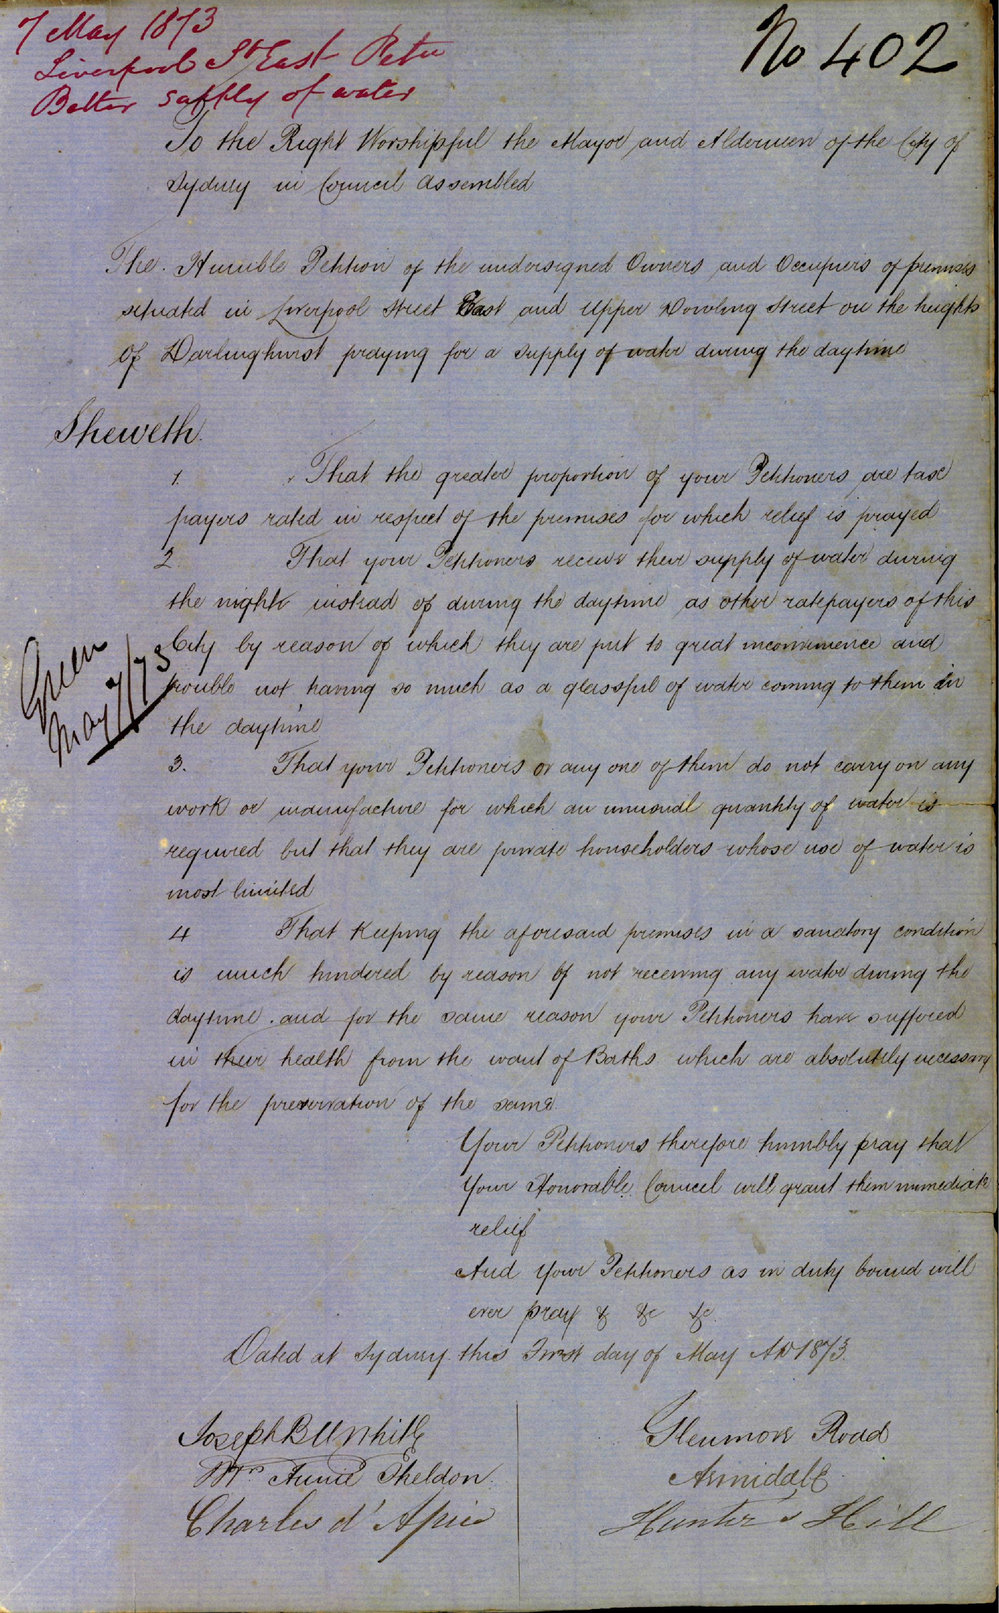 7 May 1873
Liverpool St East Petn
Better supply of water
No 402
To the Right Worshipful the Mayor and Aldermen of the City of
Sydney in Council assembled
The Humble Petition of the undersigned Owners and Occupiers of premises
situated in Liverpool Street East and Upper Dowling Street on the heights
of Darlinghurst praying for a supply of water during the daytime
Sheweth.
1. That the greater proportion of your Petitioners are tax
payers rated in respect of the premises for which relief is prayed
2. That your Petitioners receive their supply of water during
the night instead of during the daytime as other ratepayers of this
City by reason of which they are put to great inconvenience and
trouble not having so much as a glassful of water coming to them in
the daytime
Green
May 7/73
3. That your Petitioners or any one of them do not carry on any
work or manufacture for which an unusual quantity of water is
required but that they are private householders whose use of water is
most limited
4 That keeping the aforesaid premises in a sanatory condition
is much hindered by reason of not receiving any water during the
daytime. and for the same reason your Petitioners have suffered
in their health from the want of Baths which are absolutely necessary
for the preservation of the same.
Your Petitioners therefore humbly pray that
Your Honorable Council will grant them immediate
relief
And Your Petitioners as in duty bound will
ever pray & &c &c.
Dated at Sydney this First day of May AD 1873.
Joseph B Unwhill Glenmore Road
Mrs Annie Sheldon. Armidale
Charles d'Apice Hunter's Hill